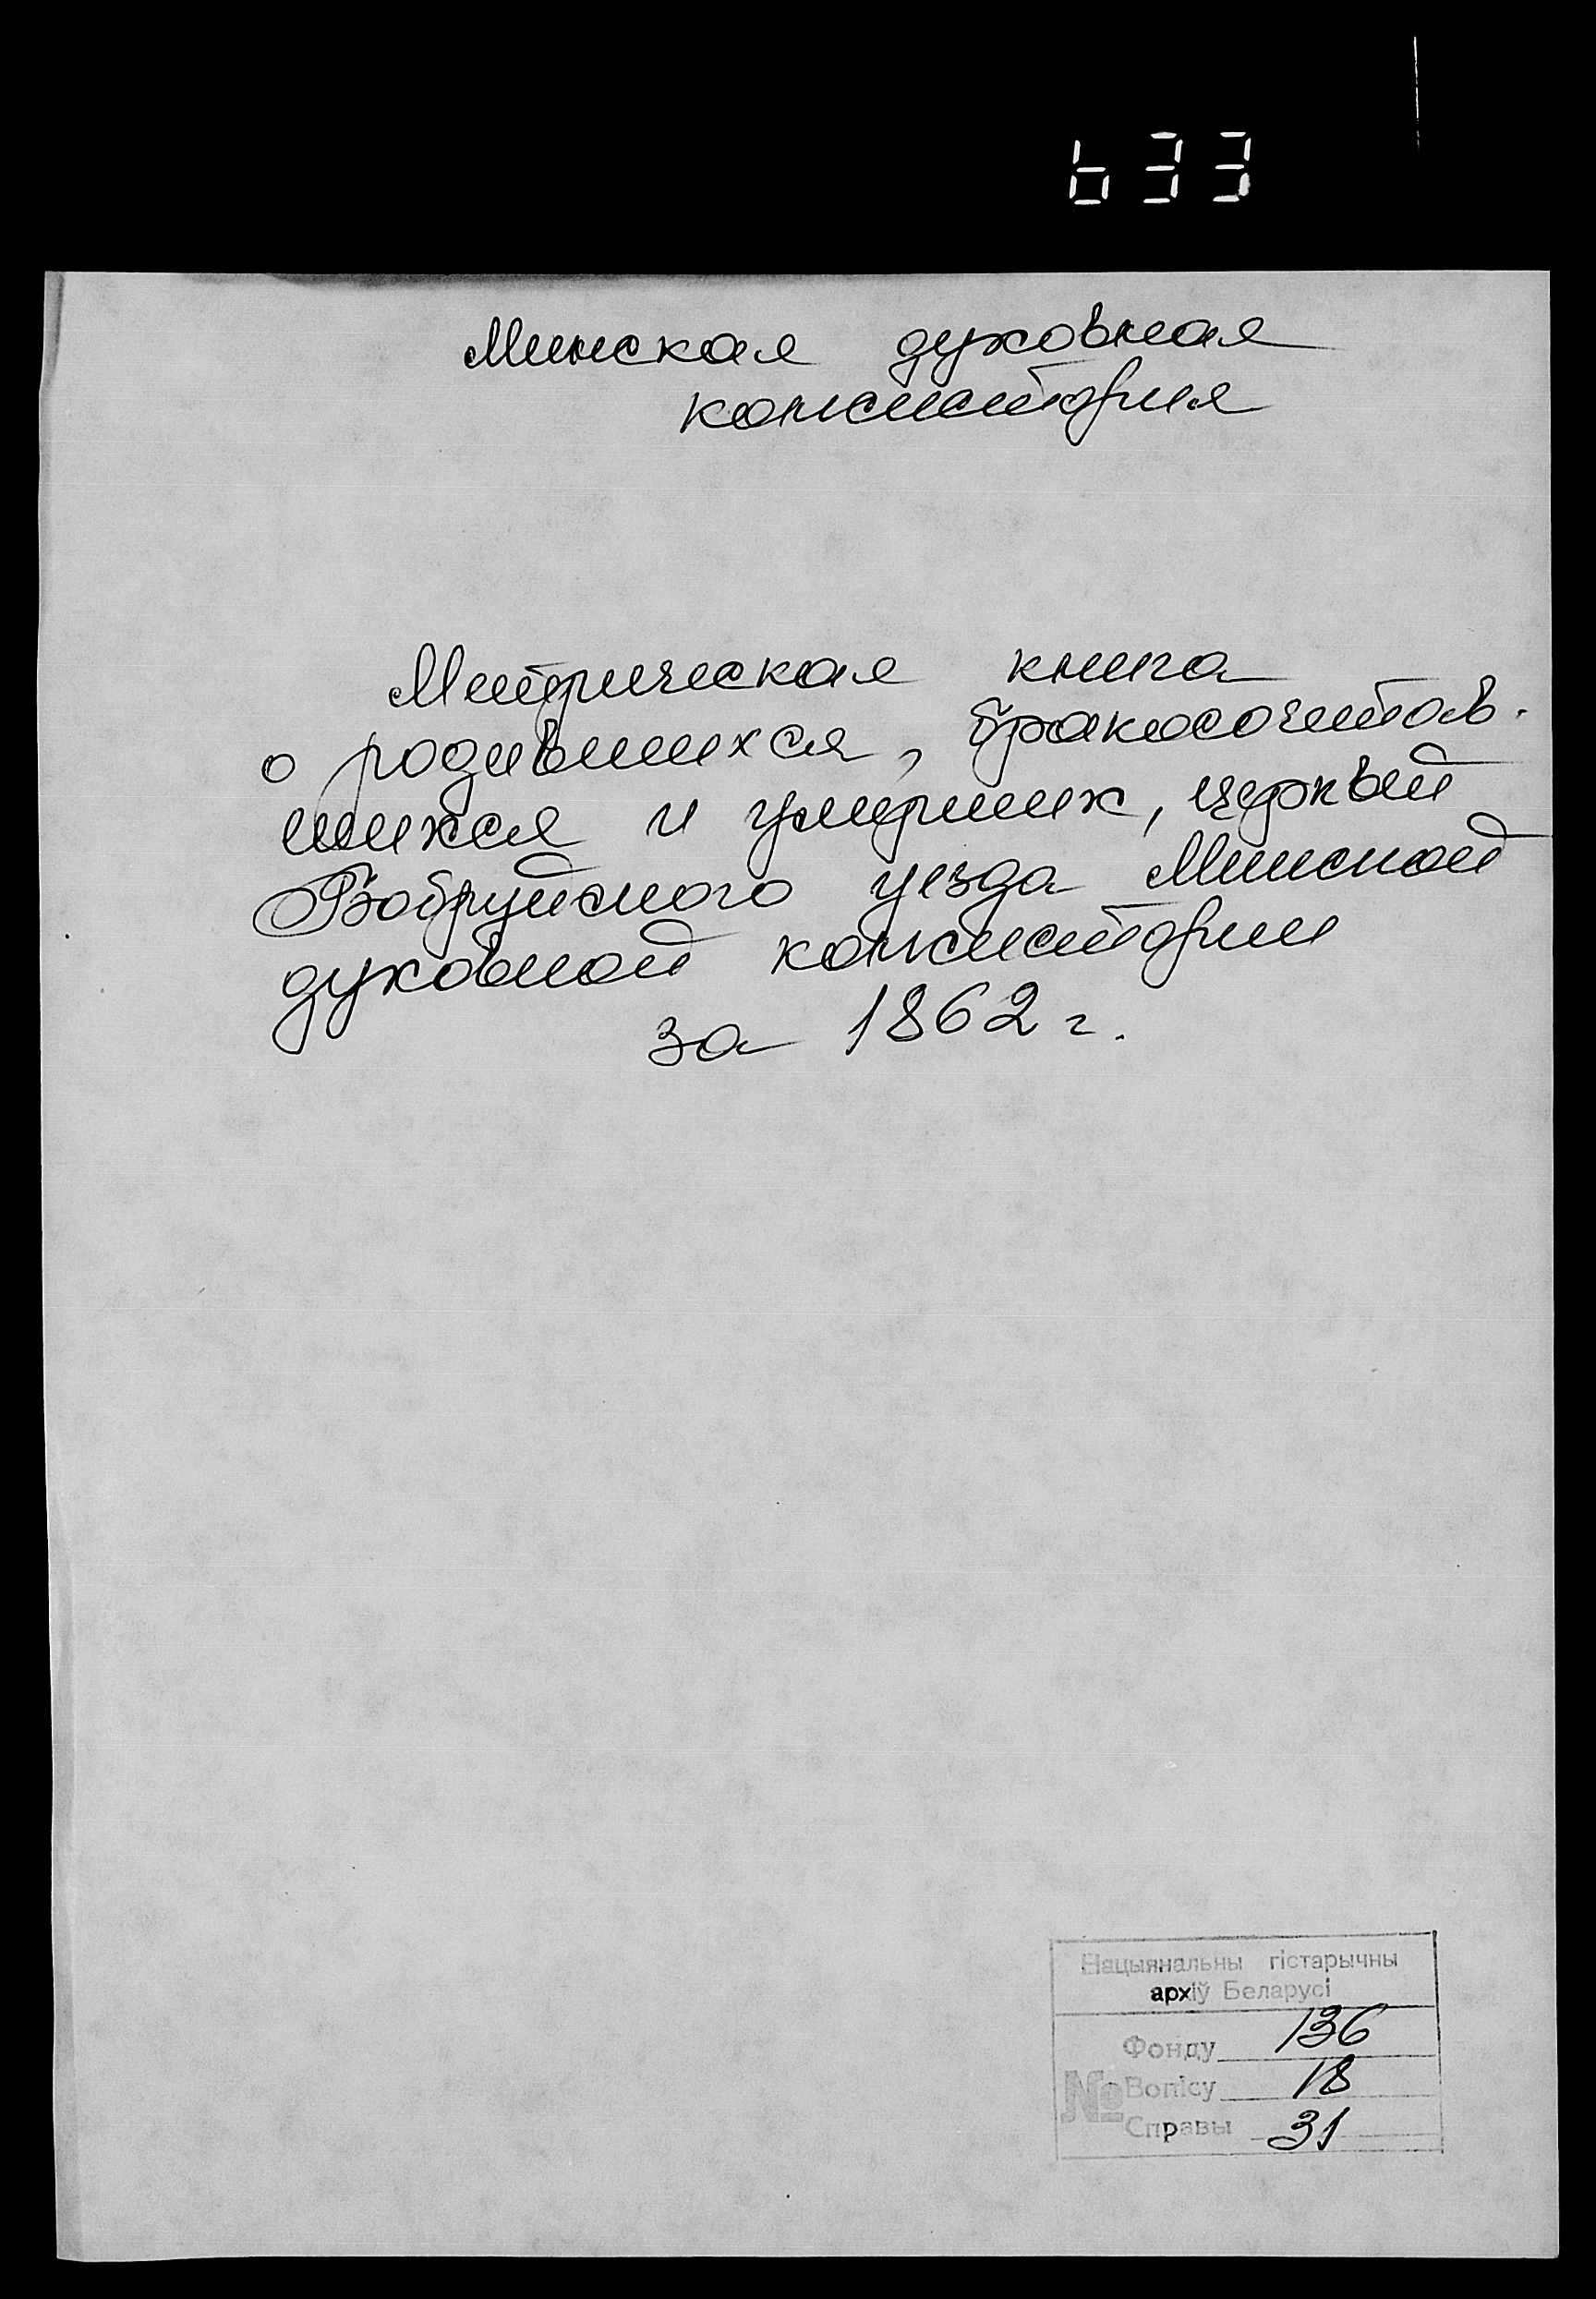 633
Минская духовная
консистория
Метрическая книга
о родившихся, бракосочетав-
шихся и умерших, церквей
Бобруйского уезда Минской
духовной консистории
за 1862 г.
Нацыянальны гістарычны
архіў Беларусі
Фонду 136
№ Вопісу 18
Справы 31